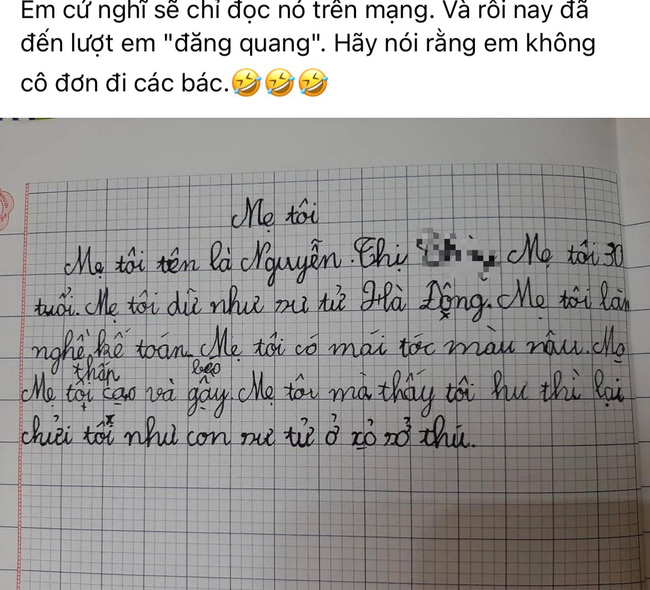 Em cứ nghĩ sẽ chỉ đọc nó trên mạng. Và rồi nay đã
đến lượt em "đăng quang". Hãy nói rằng em không
cô đơn đi các bác.🤣🤣🤣
Mẹ tôi
Mẹ tôi tên là Nguyễn Thị Mẹ tôi 30
tuổi. Mẹ tôi dữ như sư tử Hà Động. Mẹ tôi làn
nghề kế toán. Mẹ tôi có mái tóc màu nâu. Mẹ
thấp béo
Mẹ tôi cao và gầy. Mẹ tôi mà thấy tôi hư thì lại
chửi tôi như con sư tử ở xỏ sở thú.